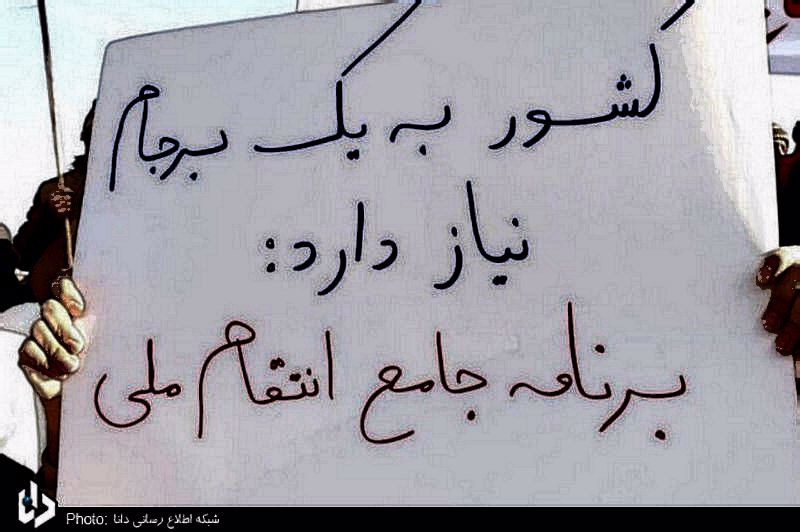 کشور به یک برجام
نیاز دارد:
برنامه جامع انتقام ملی
دانا
Photo: شبکه اطلاع رسانی دانا